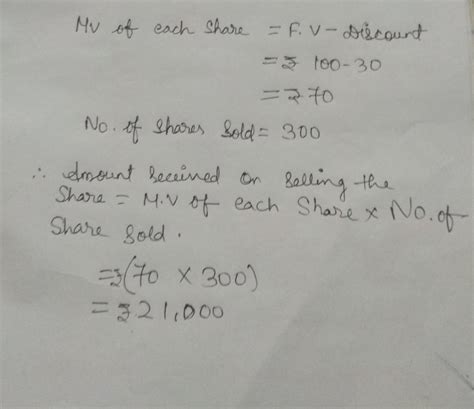 MV of each share = F.V - Discount
= ₹ 100-30
= ₹70
No. of shares sold = 300
∴ Amount received on selling the
Share = M.V of each Share × No. of
Share sold.
= ₹(70 × 300)
= ₹21,000